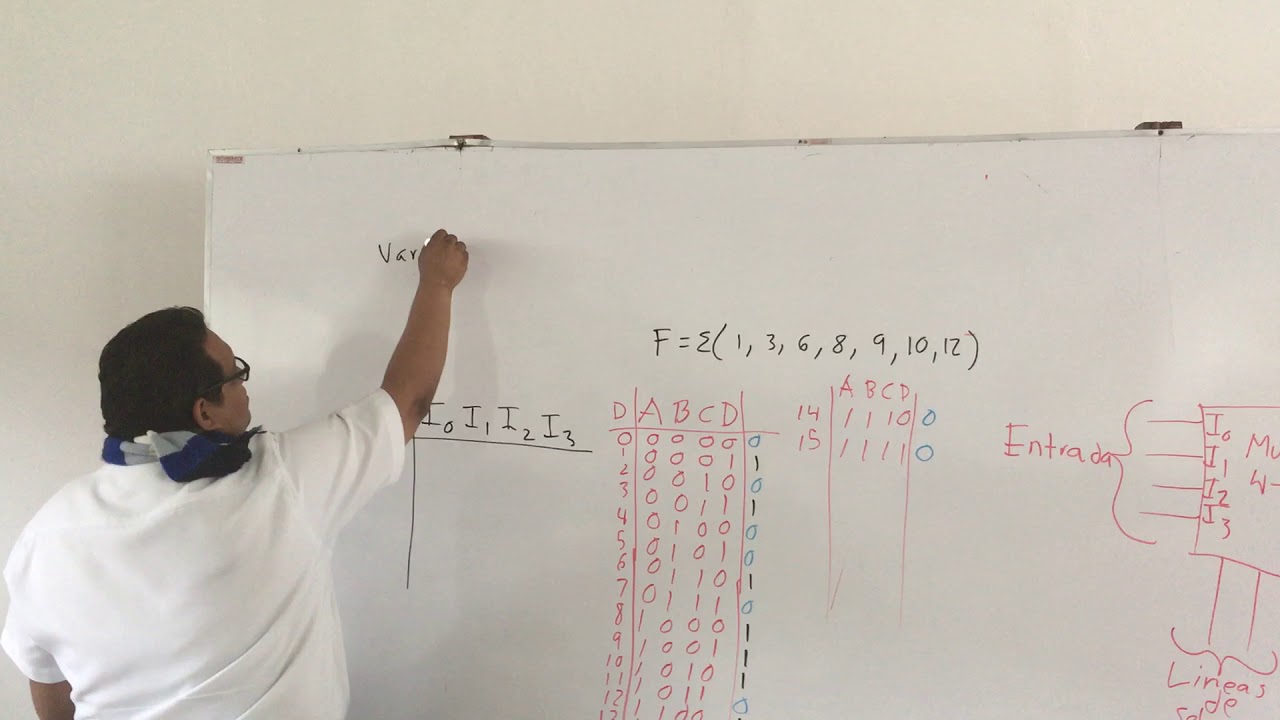 Var
F = Σ( 1, 3, 6, 8, 9, 10, 12 )
I0 I1 I2 I3
D A B C D
0 0 0 0 0 0
1 0 0 0 1 1
2 0 0 1 0 0
3 0 0 1 1 1
4 0 1 0 0 0
5 0 1 0 1 0
6 0 1 1 0 1
7 0 1 1 1 0
8 1 0 0 0 1
9 1 0 0 1 1
10 1 0 1 0 1
11 1 0 1 1 0
12 1 1 0 0
A B C D
14 1 1 1 0 0
15 1 1 1 1 0
Entrada
I0
I1
I2
I3
Mu
4-
Lineas
de